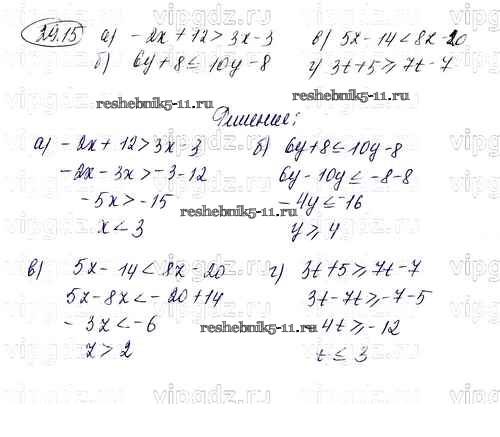 39.15 а) -2x+12>3x-3 в) 5x-14<8x-20
б) 6y+8≤10y-8 г) 3t+5≥7t-7
reshebnik5-11.ru reshebnik5-11.ru
Решение:
а) -2x+12>3x-3 б) 6y+8≤10y-8
-2x-3x>-3-12 6y-10y≤-8-8
-5x>-15 -4y≤-16
x<3 y≥4
reshebnik5-11.ru
в) 5x-14<8x-20 г) 3t+5≥7t-7
5x-8x<-20+14 3t-7t≥-7-5
-3x<-6 4t≥-12
x>2 t≤3
reshebnik5-11.ru
vipgdz.ru